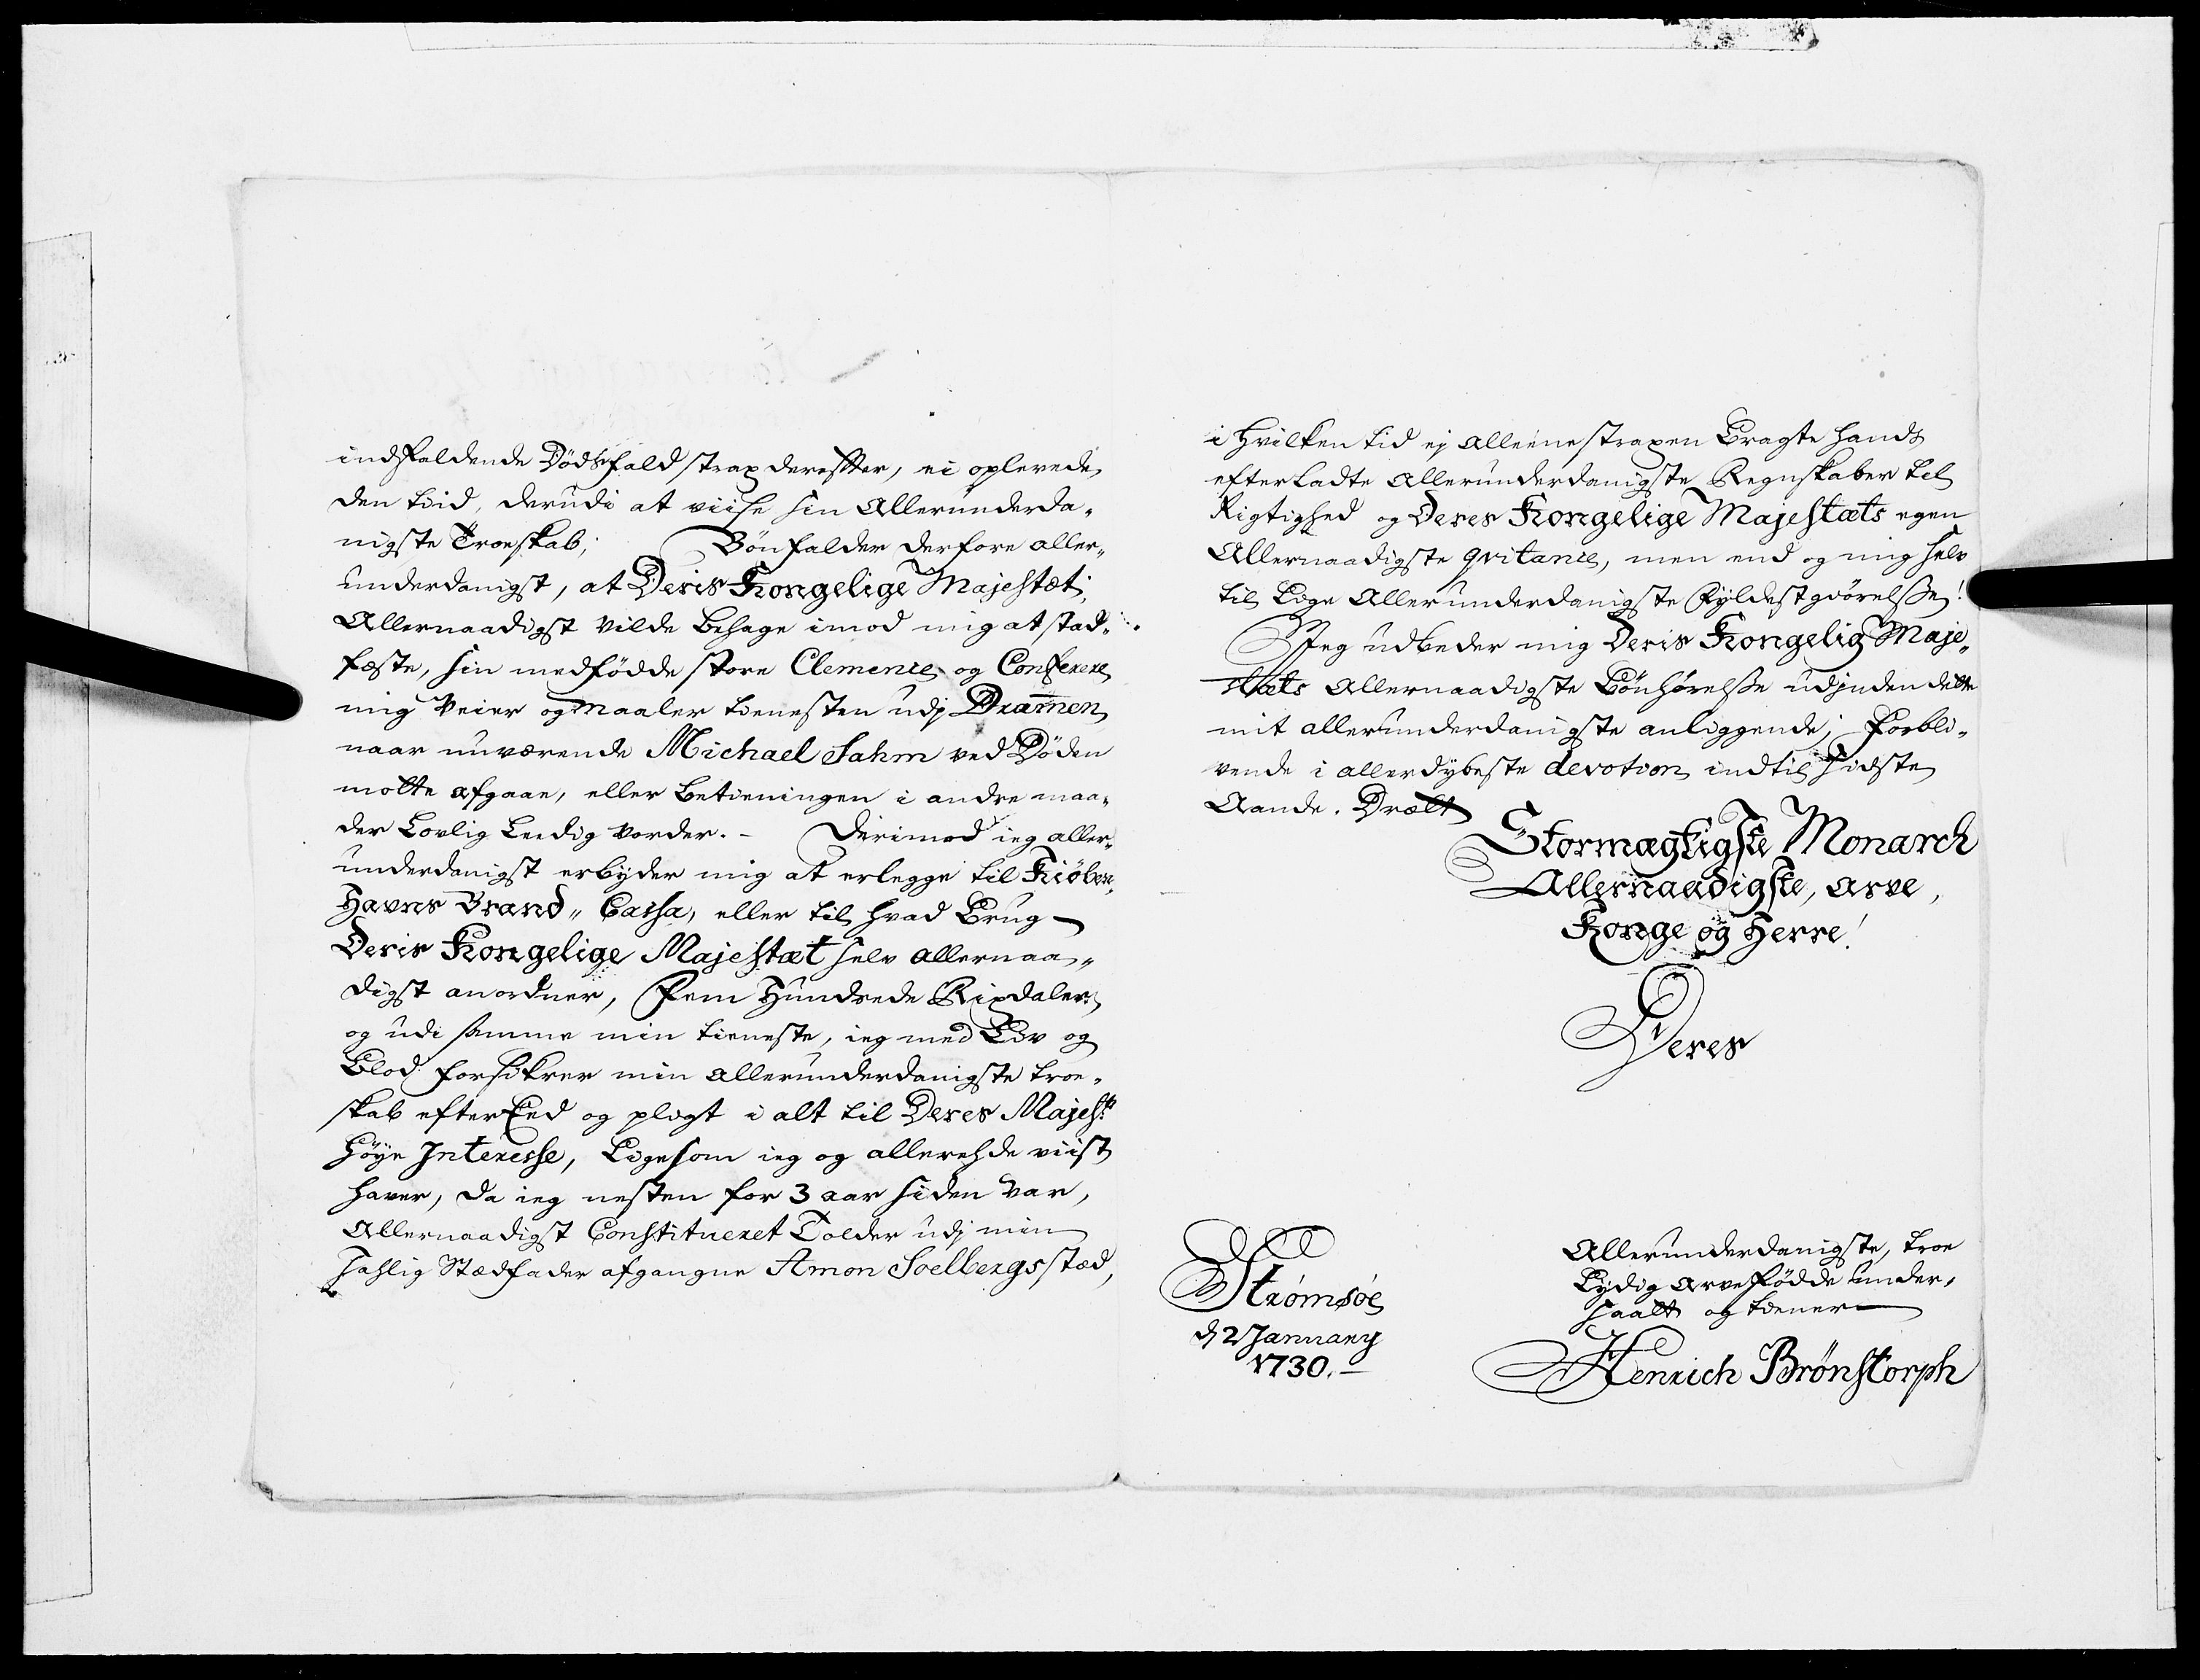 indfaldende Dødsfald strax derefter, ei oplevede
den tiid, derudi at viise sin Allerunderda-
nigste Troeskab; Bønfalder derfore aller-
underdanigst, at Deris Kongelige Majestæt
Allernaadigst vilde behage imod mig at stad-
fæste, sin medfødde store Clemence og Conferere
mig Veier og Maaler tienesten udj Dramen
naar nuværende Michael Sahm ved Døden
motte afgaae, eller betieningen i andre maa-
der Lovlig Leedig vorder. – Derimod ieg aller-
underdanigst erbyder mig at erlegge til Kiøben-
Havns Brand-Cassa, eller til hvad Brug
Deris Kongelige Majestæt selv allernaa-
digst anordner, Fem Hundrede Rixdaler,
og udi samme min tieneste, ieg med Liv og
Blod forsikrer min allerunderdanigste troe-
skab efter Eed og pligt i alt til Deres Majestts
høye Interesse, Ligesom ieg og allerehde viist
haver, da ieg nesten for 3 aar siden var,
Allernaadigst Constitueret Tolder udj min
Sahlig Stædfader afgangne Amon Soelbergs stæd,
i hvilken tid ej alleene straxen bragte hands
efterladte allerunderdanigste Regnskaber til
Rigtighed og Deres Kongelige Majestæts egen
Allernaadigste qvitance, men end og mig selv
til lige Allerunderdanigste Fyldestgiørelsse!
Jeg udbeder mig Deris Kongelig Maje-
stæts Allernaadigste Bønhørelsse udjnden dette
mit allerunderdanigste anliggende; Forbli-
vende i allerdybeste devotion indtil sidste
Aande.
Stormægtigste Monarch
Allernaadigste, arve,
Konge og Herre!
Deres
Strømsøe
d 2 January
1730. –
Allerunderdanigste, troe
Lydig arvefødde under-
saatt og tiener
Henrich Brønstorph